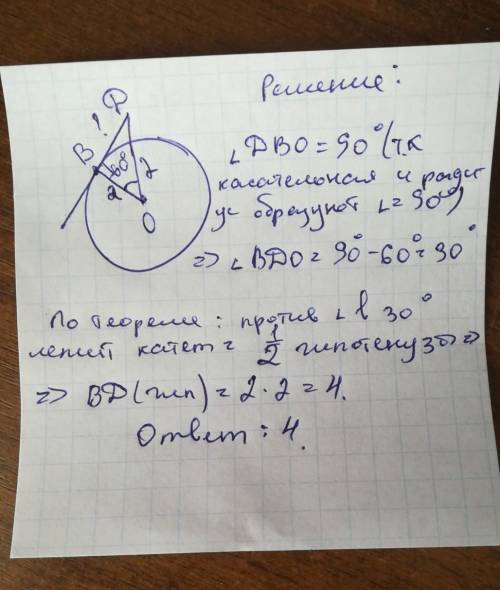 Решение:
D
B
!
60°
2
?
O
∠DBO = 90° (т.к
касательная и ради
ус образуют ∠= 90°)
=> ∠BDO = 90° - 60° = 30°
По теореме: против ∠ в 30°
лежит катет = 1/2 гипотенузы =>
=> BD (гип) = 2 · 2 = 4.
Ответ: 4.